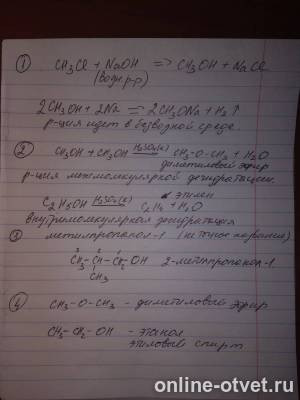 ① CH3Cl + NaOH => CH3OH + NaCl
(водн. р-р)
2CH3OH + 2Na = 2CH3ONa + H2↑
р-ция идет в безводной среде
② CH3OH + CH3OH H2SO4(к) → CH3-O-CH3 + H2O
диметиловый эфир
р-ция межмолекулярной дегидратации.
C2H5OH H2SO4(к) → C2H4 + H2O
этилен
внутримолекулярная дегидратация
③ метилпропанол-1 (не точное название)
3 2 1
CH3-CH-CH2-OH 2-метилпропанол-1
CH3
④ CH3-O-CH3 - диметиловый эфир
CH3-CH2-OH - этанол
этиловый спирт
online-otvet.ru